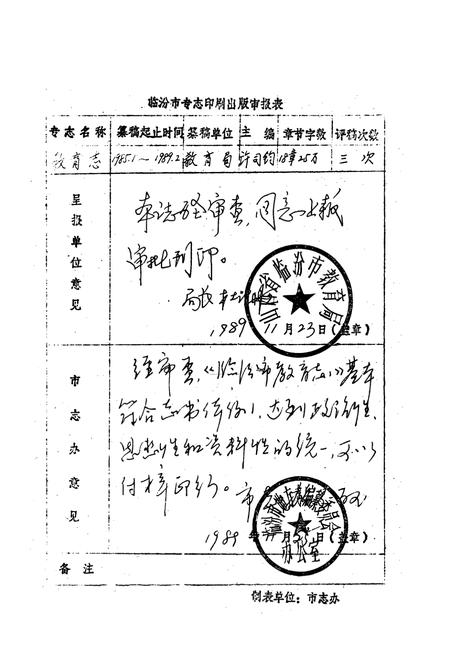 临汾市专志印刷出版审报表
专志名称 纂稿起止时间 纂稿单位 主编 章节字数 评稿次数
教育志 1985.1～1989.2 教育局 许司钧 18章25万 三次
呈报单位意见
本志经审查，同意上报
审批刊印。
局长
山西省临汾市教育局
1989 11月23日（盖章）
市志办意见
经审查，《临汾市教育志》基本
符合志书体例，达到政治性、
思想性和资料性的统一，可以
付梓印行。
办公室
1989年 月 日（盖章）
备注
制表单位：市志办